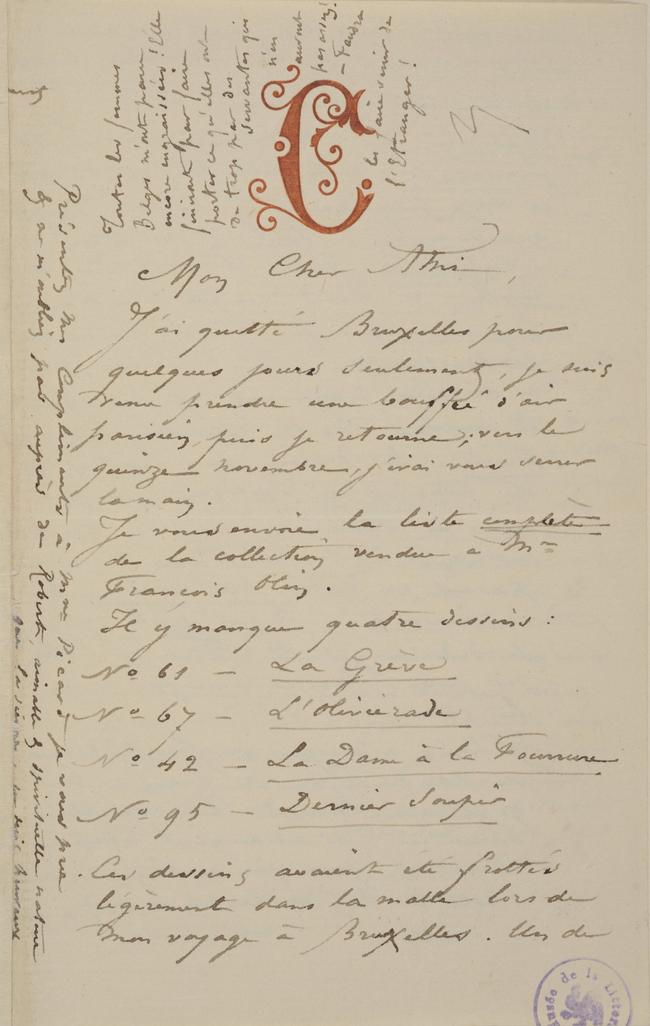 Mon Cher Ami,
J'ai quitté Bruxelles pour
quelques jours seulement, je suis
venu prendre une bouffée d'air
parisien, puis je retourne; vers le
quinze novembre, j'irai vous serrer
la main.
Je vous envoie la liste complète
de la collection vendue à Mr
François Olin.
Il y manque quatre dessins :
No 61 — La Grève
No 67 — L'Oliviérade
No 42 — La Dame à la Fourrure
No 95 — Dernier Soupir
Ces dessins avaient été frottés
légèrement dans la malle lors de
mon voyage à Bruxelles. Un de
Présentez mes Compliments à Mme Picard je vous prie
& ne m'oubliez pas auprès de Robert, aimable & spirituelle nature
Toutes les femmes
Belges n'ont
encore
finiront par faire
porter ce qu'elles ont
de trop par des
servantes qui
n'en
auront
pas assez!
— Faudra
les faire venir de
l'Etranger!
C
Musée de la Littér